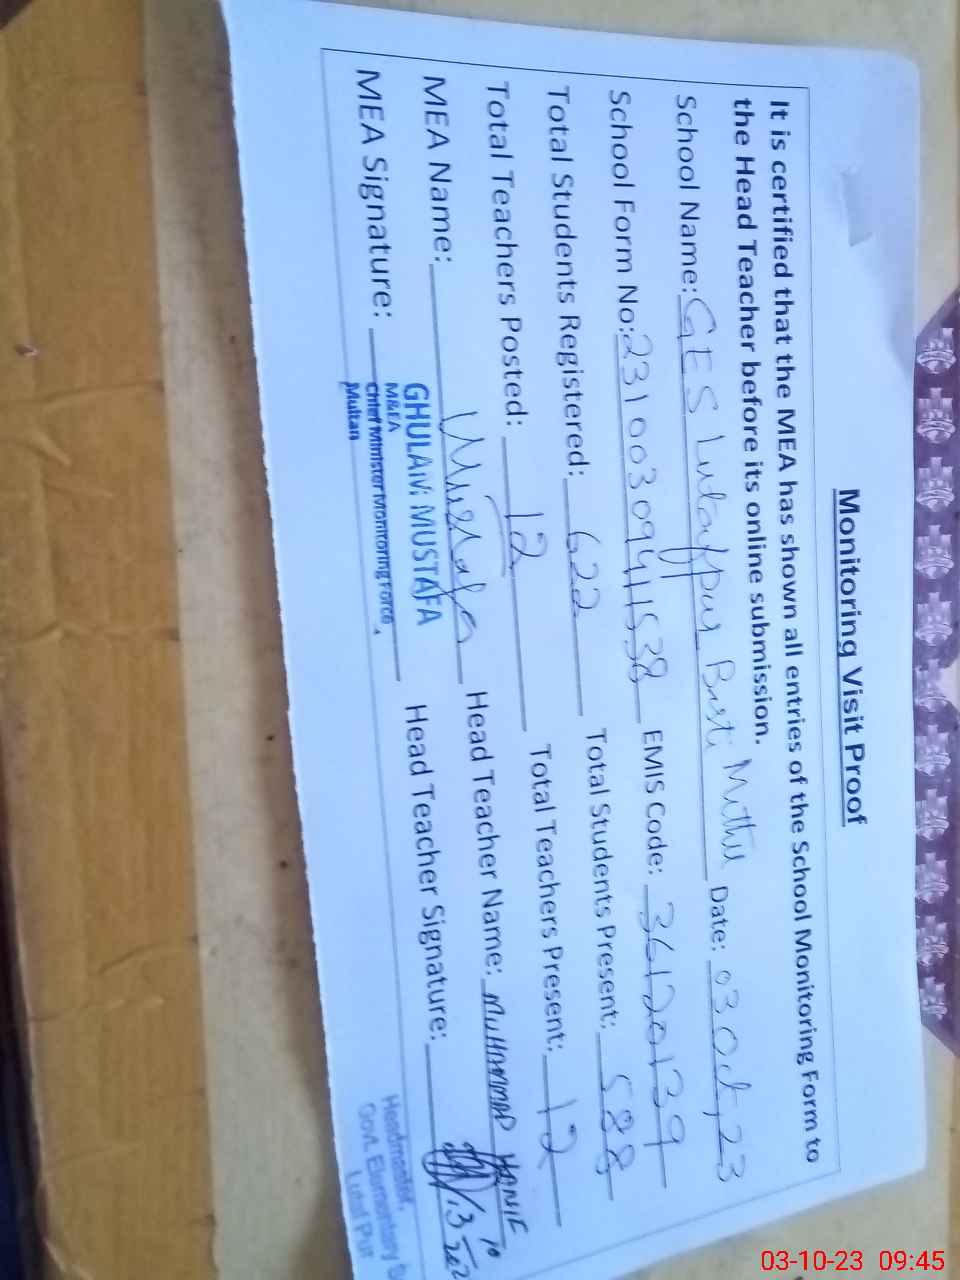 Monitoring Visit Proof
It is certified that the MEA has shown all entries of the School Monitoring Form to
the Head Teacher before its online submission.
School Name: GES Lutafpur Basti Mithu Date: 03 Oct, 23
School Form No: 2310030941538 EMIS Code: 36120139
Total Students Registered: 622 Total Students Present: 588
Total Teachers Posted: 12 Total Teachers Present: 12
MEA Name: Mustafa Head Teacher Name: MUHAMMAD HANIF
MEA Signature: Head Teacher Signature:
GHULAM MUSTAFA
M&EA
Chief Minister Monitoring Force,
Multan
Headmaster,
Govt. Elementary
Lutaf Pur
03-10-23 09:45